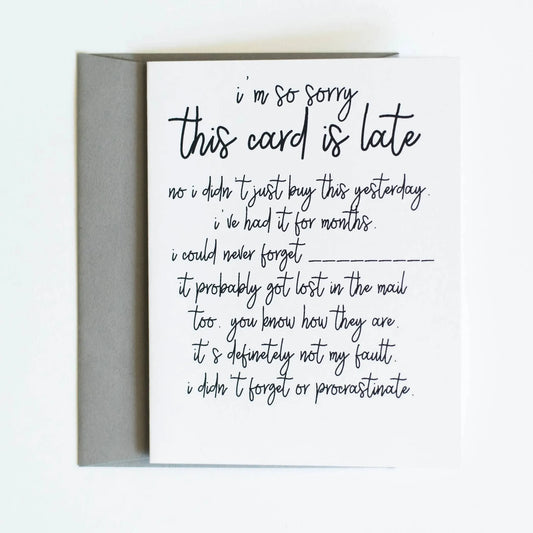 i'm so sorry
this card is late
no i didn't just buy this yesterday.
i've had it for months.
i could never forget __________
it probably got lost in the mail
too. you know how they are.
it's definetely not my fault.
i didn't forget or procrastinate.